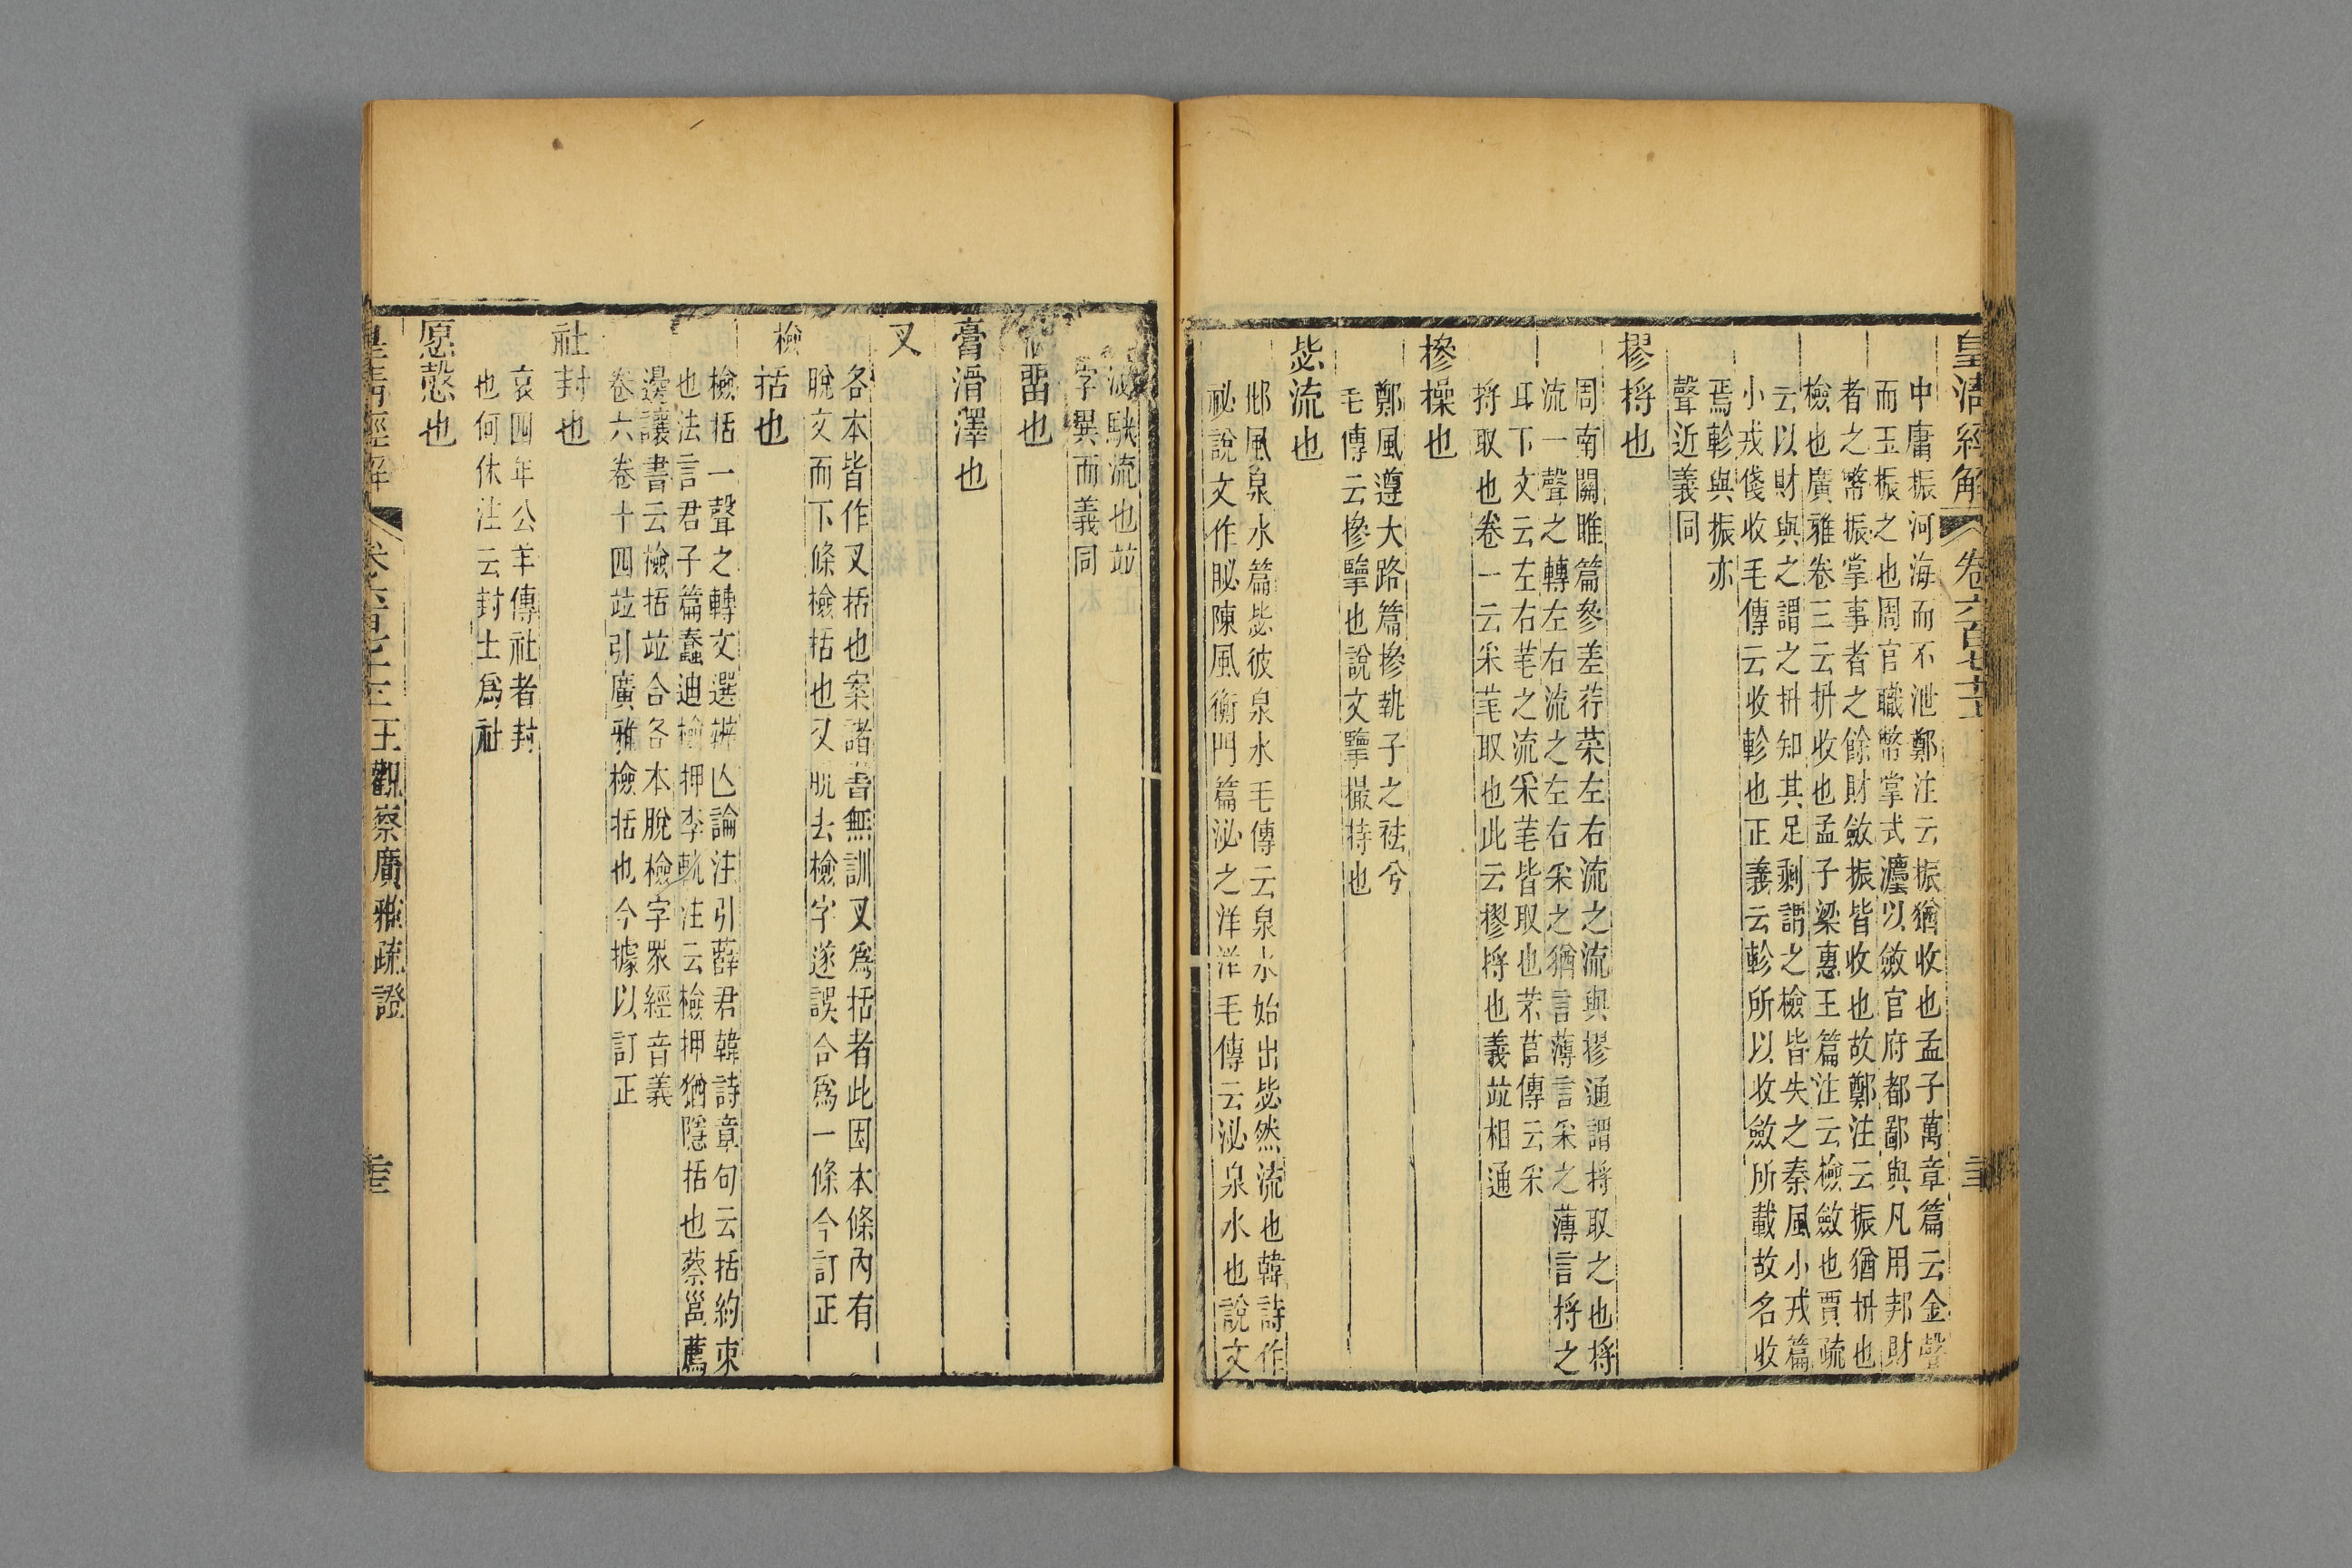 皇清經解 卷六百七十三
中庸振河海而不泄鄭注云振猶收也孟子萬章篇云金聲
而玉振之也周官職幣掌式灋以斂官府都鄙與凡用邦財
者之幣振掌事者之餘財斂振皆收也故鄭注云振猶抍也
檢也廣雅卷三云抍收也孟子梁惠王篇注云檢斂也賈疏
云以財與之謂之抍知其足剩謂之檢皆失之秦風小戎篇
小戎俴收毛傳云收軫也正義云軫所以收斂所載故名收
焉軫與振亦
聲近義同
摎捋也
周南關雎篇參差荇菜左右流之流與摎通謂捋取之也捋
流一聲之轉左右流之左右采之猶言薄言采之薄言捋之
耳下文云左右芼之流采芼皆取也芣苢傳云采
捋取也卷一云采芼取也此云摎捋也義竝相通
摻操也
鄭風遵大路篇摻執子之袪兮
毛傳云摻擥也說文擥撮持也
毖流也
邶風泉水篇毖彼泉水毛傳云泉水始出毖然流也韓詩作
祕說文作䀣陳風衡門篇泌之洋洋毛傳云泌泉水也說文
泌駃流也竝
字異而義同
㽞也
膏滑澤也
叉
各本皆作叉括也案諸書無訓叉爲括者此因本條內有
脫文而下條檢括也又脫去檢字遂誤合爲一條今訂正
檢括也
檢括一聲之轉文選辨亾論注引薛君韓詩章句云括約束
也法言君子篇蠢迪檢押李軌注云檢押猶隱括也蔡邕薦
邊讓書云檢括竝合各本脫檢字眾經音義
卷六卷十四竝引廣雅檢括也今據以訂正
社封也
哀四年公羊傳社者封
也何休注云封土爲社
愿愨也
皇清經解 卷六百七十三 王觀察廣雅疏證